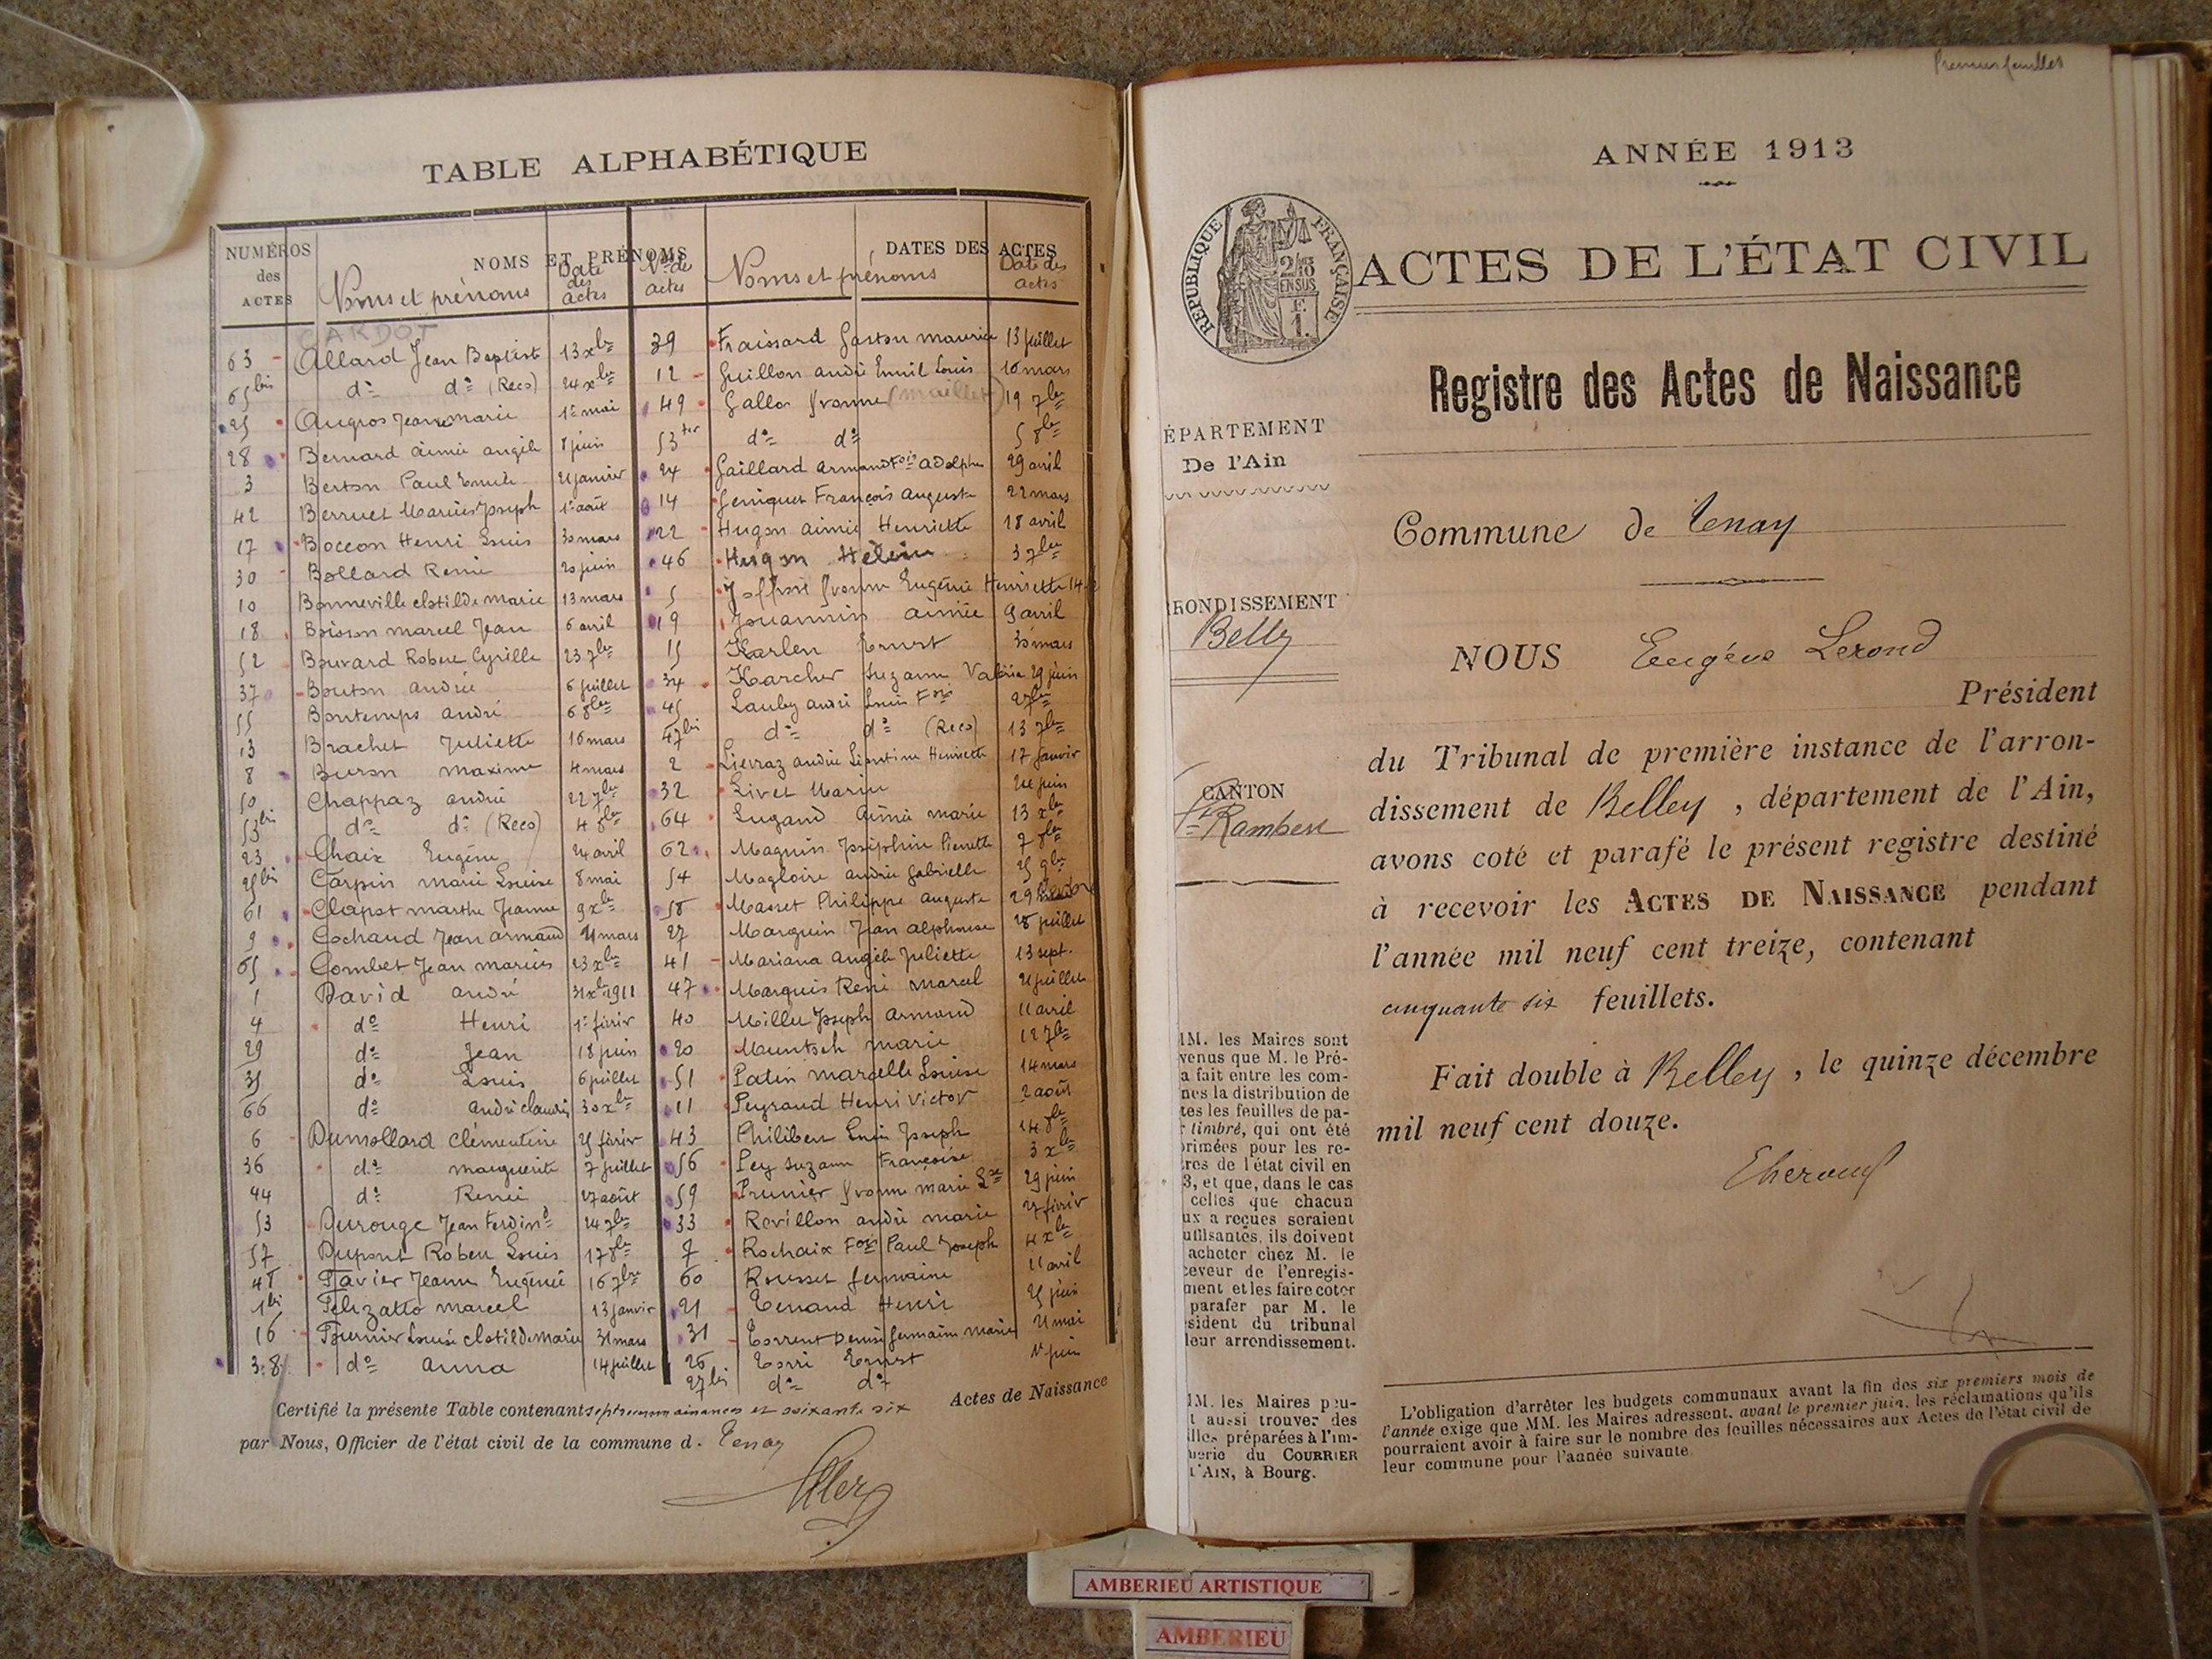 TABLE ALPHABÉTIQUE
NUMÉROS des ACTES
NOMS ET PRÉNOMS
DATES DES ACTES
Noms et prénoms
Date des actes
Nos des actes
Noms et prénoms
Date des actes
CARDOT
63 Allard Jean Baptiste 13 xbre
65bis do do (Reco) 24 xbre
25 Augros Jeanne Marie 1er mai
28 Bernard Aimée Angèle 8 juin
3 Berton Paul Emile 21 janvier
42 Berruet Marius Joseph 1er août
17 Boccon Henri Louis 30 mars
30 Bollard René 20 juin
10 Bonneville Clotilde Marie 13 mars
18 Boisson Marcel Jean 6 avril
52 Bouvard Robert Cyrille 23 7bre
37 Bouton Andrée 6 juillet
55 Bontemps André 6 8bre
13 Brachet Juliette 16 mars
8 Buron Maxime 4 mars
50 Chappaz André 22 7bre
53bis do do (Reco) 4 8bre
23 Chaix Eugène 24 avril
25bis Carpin Marie Louise 8 mai
61 Clapot Marthe Jeanne 9 xbre
9 Cochaud Jean Armand 4 mars
65 Combet Jean Marius 23 xbre
1 David André 31 xbre 1911
4 do Henri 1er févrir
29 do Jean 18 juin
35 do Louis 6 juillet
66 do André Claudis 30 xbre
6 Dumollard Clémentine 25 févrir
36 do Marguerite 7 juillet
44 do Renée 27 août
53 Durouge Jean Ferdind 24 7bre
57 Dupont Robert Louis 17 8bre
48 Favier Jeanne Eugénie 16 7bre
1bis Felizatto Marcel 13 janvir
16 Fournier Louise Clotilde Marie 31 mars
38 do Anna 14 juillet
39 Fraissard Gaston Maurice 13 juillet
12 Guillon André Emile Louis 16 mars
49 Gallo Yvonne (Maillet) 19 7bre
53ter do do 5 8bre
24 Gaillard Armand Fois Adolphe 29 avril
14 Geniquet François Auguste 22 mars
22 Hugon Aimée Henriette 18 avril
46 Hugon Hélène 3 7bre
5 Joffroi Yvonne Eugénie Henriette 14
19 Jouannin Aimée 9 avril
15 Karlen Ernest 30 mars
34 Karcher Suzanne Valérie 29 juin
45 Lauby André Louis Fois 2 7bre
47bis do do (Reco) 13 7bre
2 Lievraz Andrée Léontine Henriette 17 janvir
32 Livet Marie 24 juin
64 Lugand Aimée Marie 13 xbre
62 Maguin Joséphine Pierrette 7 8bre
54 Magloire Andrée Gabrielle 25 9bre
58 Masset Philippe Auguste 29
27 Marguin Jean Alphonse 28 juillet
41 Mariana Angèle Juliette 13 sept.
47 Marquis René Marcel 21 juillet
40 Millet Joseph Armand 11 avril
20 Muntsch Marie 12 7bre
51 Patin Marcelle Louise 14 mars
11 Peyraud Henri Victor 2 août
43 Philibert Louis Joseph 14 8bre
56 Pey Suzanne Françoise 3 xbre
59 Prunier Yvonne Marie Lse 29 juin
33 Revillon André Marie 27 févrir
7 Rochaix Fois Paul Joseph 4 xbre
60 Rousset Germaine 11 avril
21 Tenand Henri 25 juin
31 Torrent Denise Germaine Marie 21 mai
26 Torri Ernest 1er juin
27bis do do
Certifié la présente Table contenant sept reconnaissances et soixante six Actes de Naissance
par Nous, Officier de l'état civil de la commune d. Tenay
Premier feuillet
ANNÉE 1913
RÉPUBLIQUE FRANÇAISE
2/10 EN SUS
F. 1.
ACTES DE L'ÉTAT CIVIL
Registre des Actes de Naissance
ÉPARTEMENT
De l'Ain
Commune de Tenay
RONDISSEMENT
Belley
NOUS Eugène Lerond
Président
du Tribunal de première instance de l'arron-
dissement de Belley, département de l'Ain,
avons coté et parafé le présent registre destiné
à recevoir les ACTES DE NAISSANCE pendant
l'année mil neuf cent treize, contenant
cinquante six feuillets.
Fait double à Belley, le quinze décembre
mil neuf cent douze.
CANTON
St Rambert
MM. les Maires sont
venus que M. le Pré-
a fait entre les com-
nes la distribution de
tes les feuilles de pa-
r timbré, qui ont été
primées pour les re-
tres de l'état civil en
3, et que, dans le cas
celles que chacun
ux a reçues seraient
uffisantes, ils doivent
acheter chez M. le
ceveur de l'enregis-
ment et les faire coter
parafer par M. le
sident du tribunal
leur arrondissement.
MM. les Maires peu-
t aussi trouver des
illes préparées à l'im-
merie du COURRIER
L'AIN, à Bourg.
L'obligation d'arrêter les budgets communaux avant la fin des six premiers mois de
l'année exige que MM. les Maires adressent, avant le premier juin, les réclamations qu'ils
pourraient avoir à faire sur le nombre des feuilles nécessaires aux Actes de l'état civil de
leur commune pour l'année suivante.
AMBERIEU ARTISTIQUE
AMBERIEU